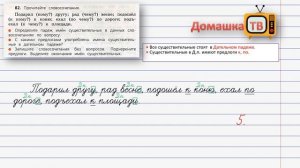 82. Прочитайте словосочетания.
Подарил (кому?) другу; рад (чему?) весне; подошёл
(к чему?) к коню; ехал (по чему?) по дороге; подъ-
ехал (к чему?) к площади.
Определите падеж имён существительных в данных сло-
восочетаниях по вопросу.
С какими предлогами употреблены имена существитель-
ные в дательном падеже?
Запишите словосочетания без вопросов. Подчеркните
предлоги. Выделите окончания имён существительных.
Домашка
ТВ
• Все существительные стоят в Дательном падеже.
• Существительные в Д.п. имеют предлоги к, по.
Подарил другу, рад весне, подошёл к коню, ехал по
дороге, подъехал к площади.
5